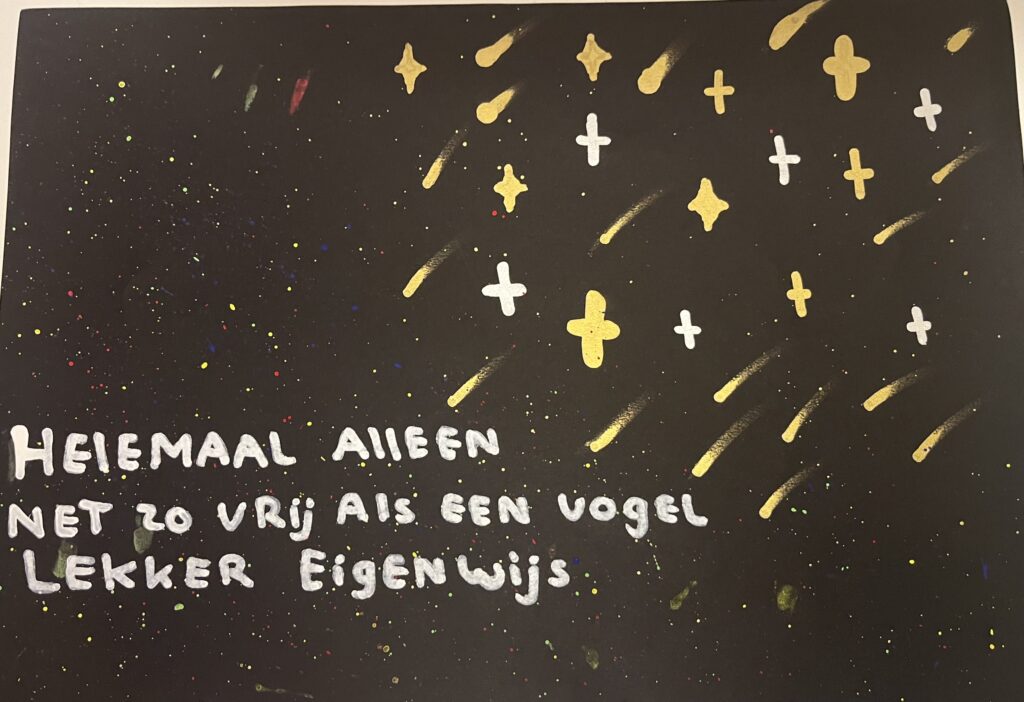 HElEMAAL AllEEN
NET zo VRij Als EEN VogEL
LEKKER EigENwijs